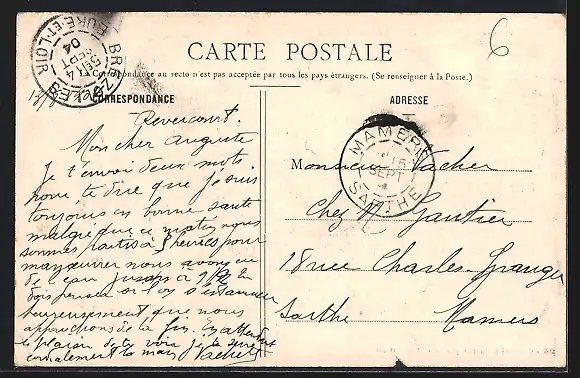 6
CARTE POSTALE
Correspondance au recto n'est pas acceptée par tous les pays étrangers. (Se renseigner à la Poste.)
CORRESPONDANCE
ADRESSE
BREZOLLES
4
SEPT
04
EURE-ET-LOIR
MAMERS
5
SEPT
SARTHE
Revercourt.
Mon cher Auguste
Je t'envoi deux mots
pour te dire que je suis
toujours en bonne santé
malgré que ce matin nous
sommes partis à 3 heures pour
manœuvrer nous avons eu
de l'eau jusqu'à 9
heureusement que nous
approchons de la fin. En attendant
le plaisir de te voir je te serre
cordialement la main Vacher
Monsieur Vacher
Chez M Gautier
18 rue Charles Granger
Sarthe Mamers